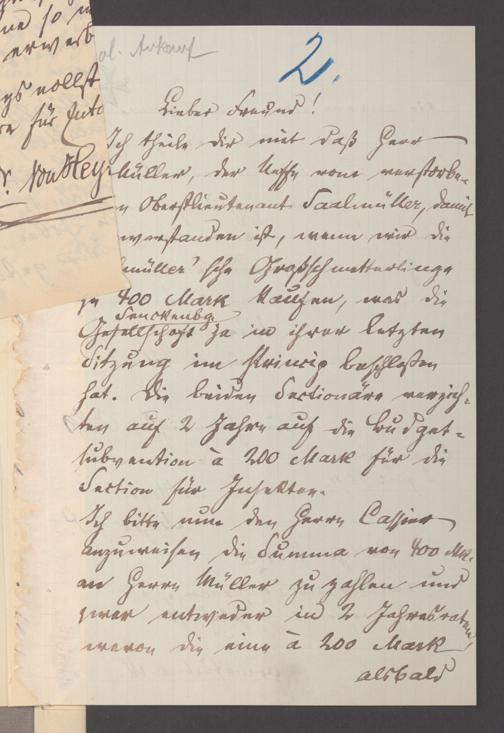 2.
Lieber Freund!
Ich theile dir mit daß Herr
Müller, der Neffe vom verstorbe-
n Oberstlieutenant Saalmüller, damit
nverstanden ist, wenn wir die
lmüller'sche Großschmetterlinge
zu 400 Mark kaufen, was die
Senckenbg
Gesellschaft ja in ihrer letzten
Sitzung im Princip beschloßen
hat. Die beiden Sectionäre verzich-
ten auf 2 Jahre auf die Budget-
subvention à 200 Mark für die
Section für Insekten.
Ich bitte nun den Herrn Cassier
anzuweisen die Summa von 400 Mk.
an Herrn Müller zu zahlen und
zwar entweder in 2 Jahresraten,
wovon die eine à 200 Mark
alsbald
ne so
erwerb
gs vollst
für Ento
Dr. von Hey